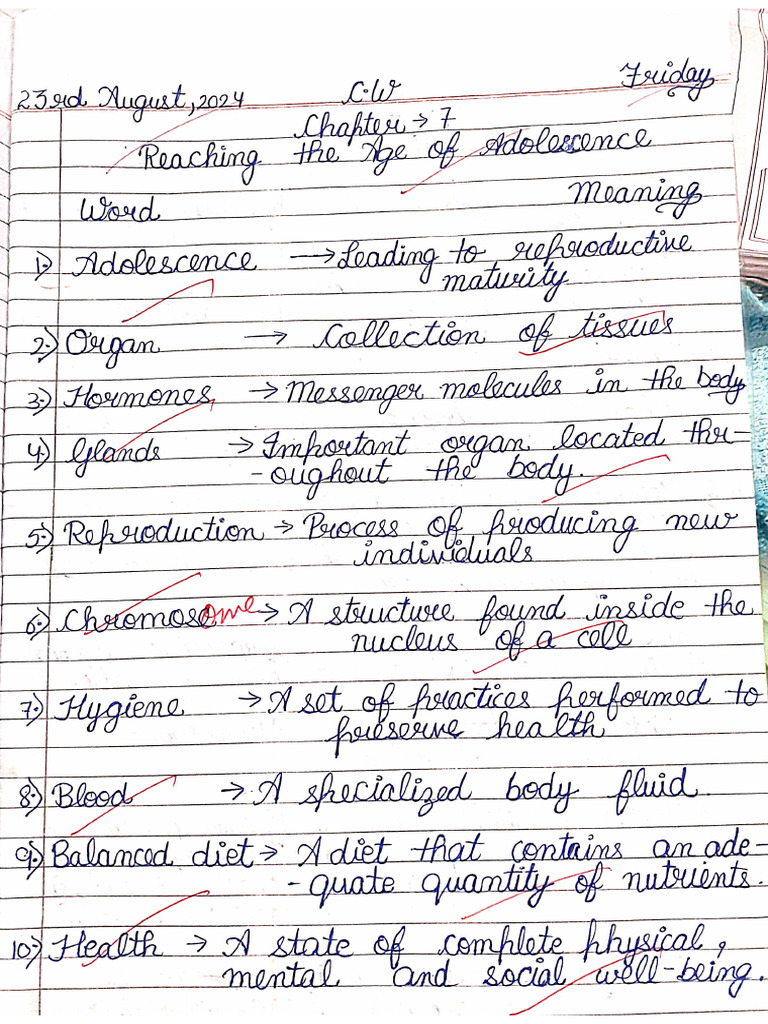 23rd August, 2024 C.W Friday
Chapter → 7
Reaching the Age of Adolescence
Word Meaning
1.) Adolescence → Leading to reproductive
maturity
2.) Organ → Collection of tissues
3.) Hormones → Messenger molecules in the body
4.) Glands → Important organ located thr-
-oughout the body.
5.) Reproduction → Process of producing new
individuals
6.) Chromosome → A structure found inside the
nucleus of a cell
7.) Hygiene → A set of practices performed to
preserve health
8.) Blood → A specialized body fluid.
9.) Balanced diet → A diet that contains an ade-
-quate quantity of nutrients.
10.) Health → A state of complete physical,
mental and social well-being.